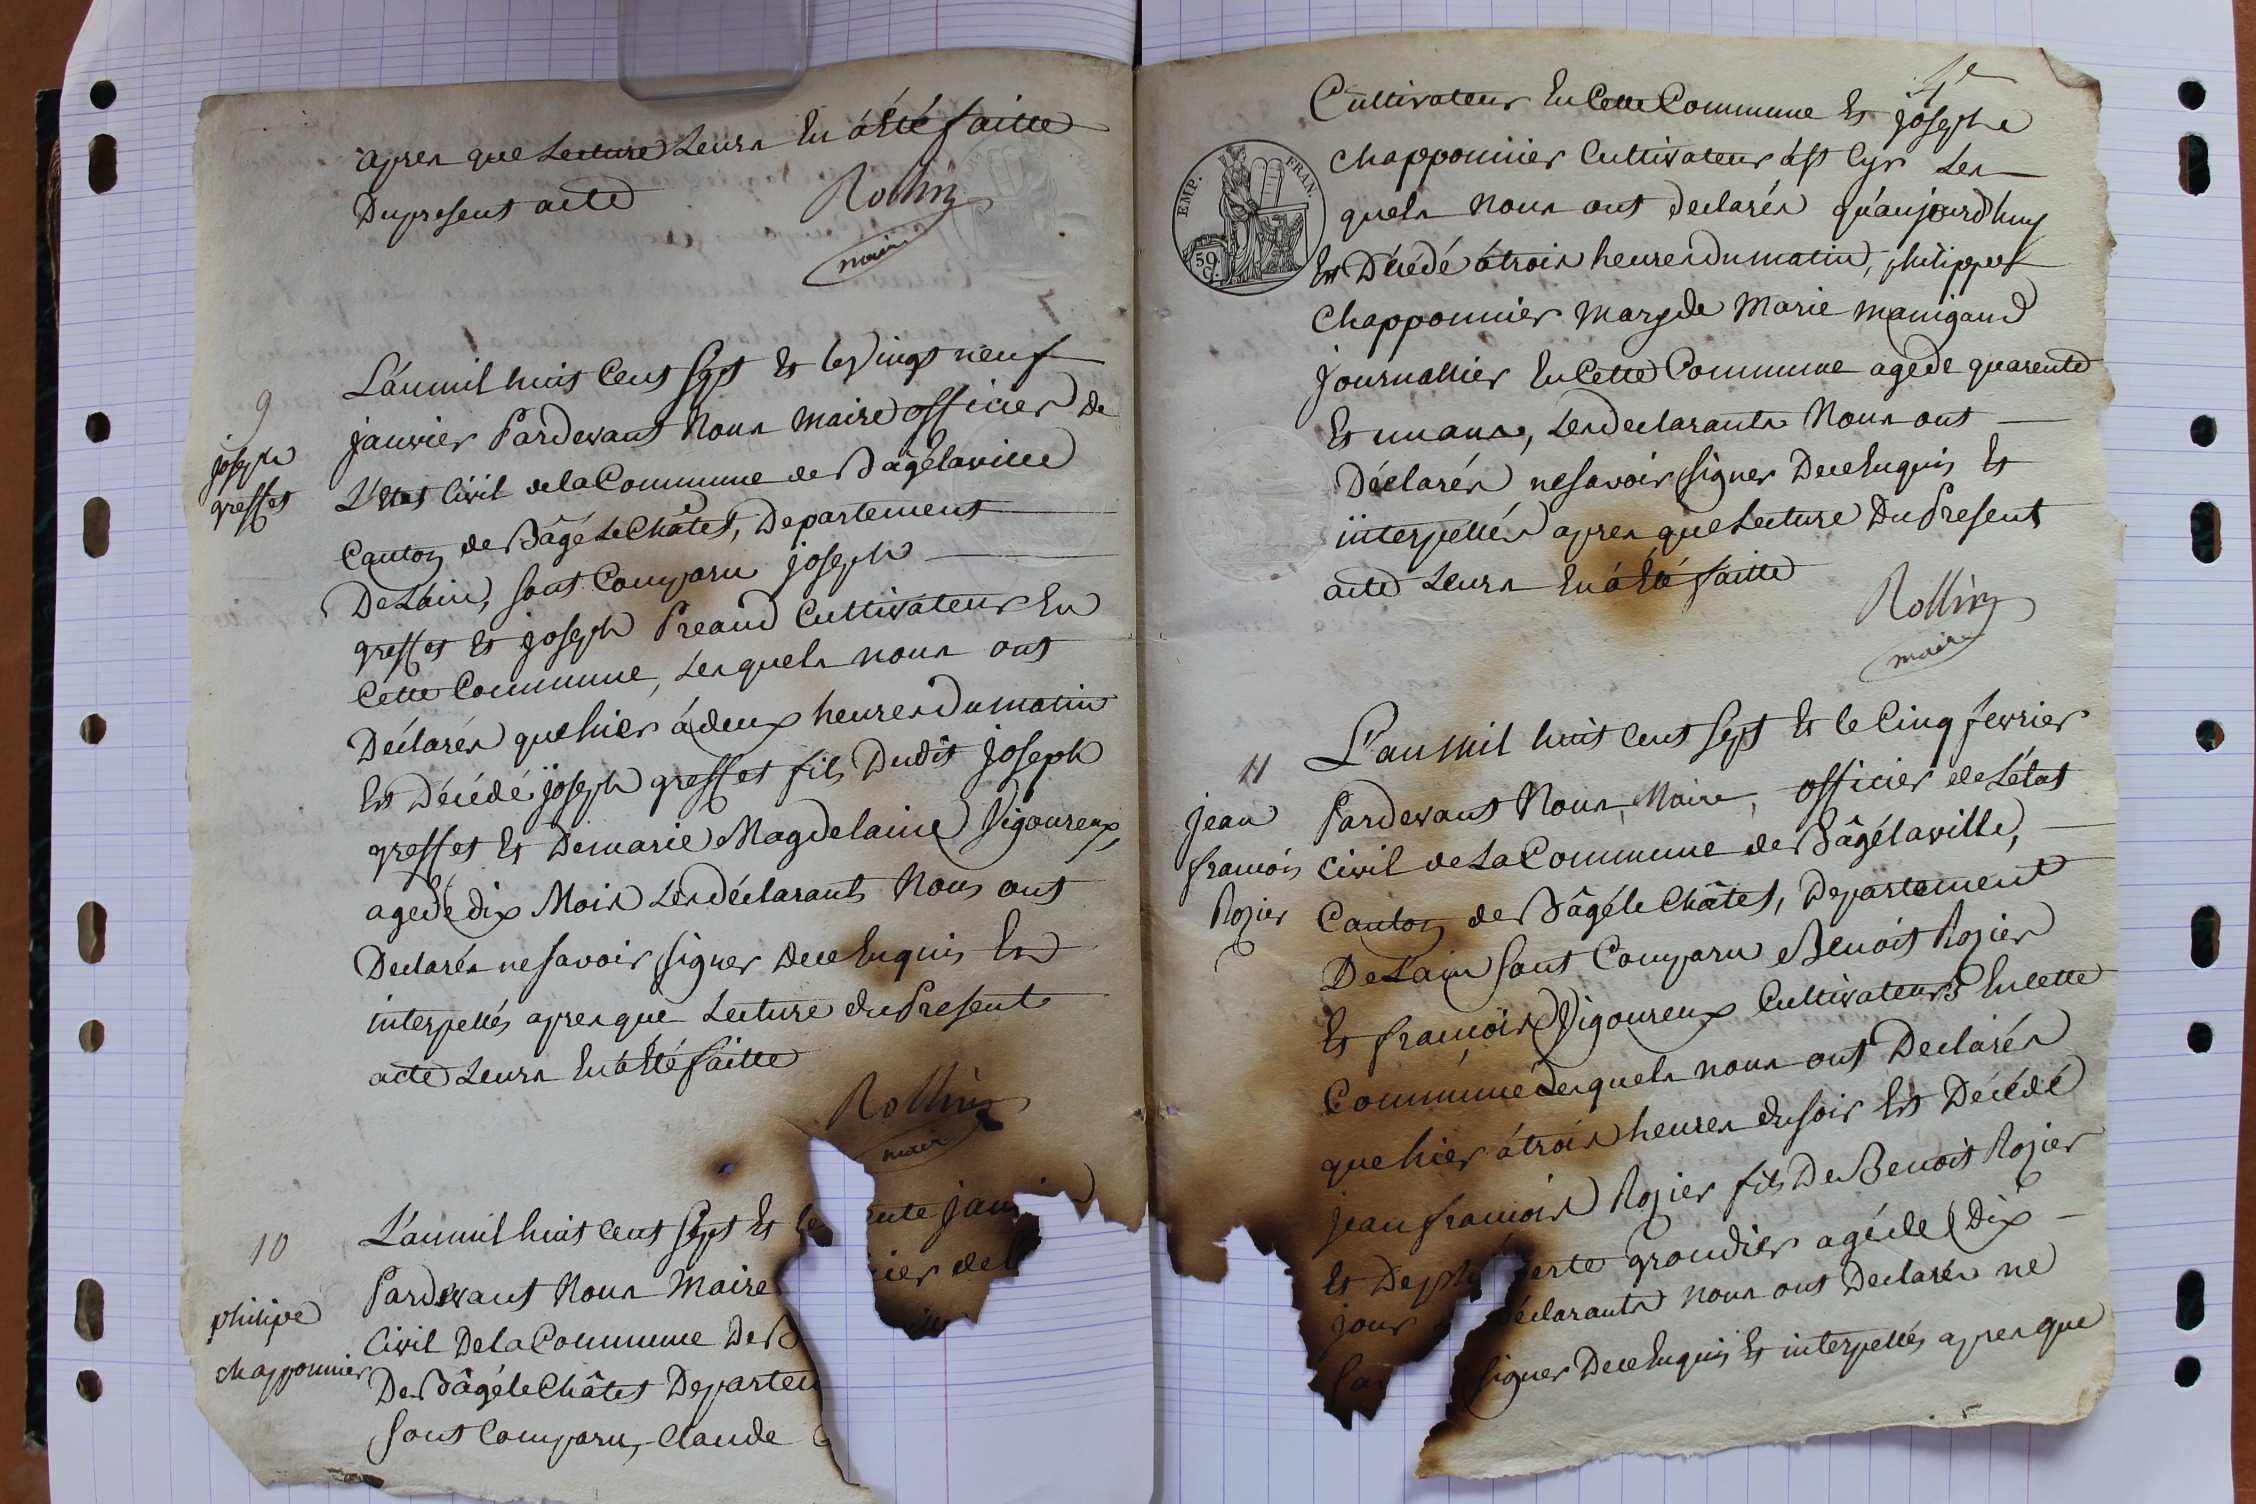 apres que Lecture Leurs En á Eté faitte
Du present acte
Rollin
maire
9
joseph
greffet
L'an mil huit Cent Sept Et le vingt neuf
janvier Pardevant Nous maire officier de
L'Etat Civil de la Commune de Bâgélaville
Canton de Bâgé Le Châtel, Departement
De Lain, sont Comparu joseph
greffet Et joseph Preaud Cultivateur En
Cette Commune, Lesquels nous ont
Déclarés que hier á deux heures Du matin
Est Décédé joseph greffet fils Dudit joseph
greffet Et De marie Magdelaine Vigoureux,
agé de dix Mois Les déclarants Nous ont
Declarés ne savoir signer De ce Enquis Et
interpellés apres que Lecture du Present
acte Leurs En á Eté faitte
Rollin
maire
10
philipe
chapponnier
L'an mil huit Cent Sept Et le
Pardevant Nous Maire
Civil De la Commune De
De Bâgé le Châtel
sont Comparu, Claude
Cultivateur En Cette Commune Et joseph
chapponnier Cultivateur á st Cyr Les
quels nous ont declarés qu'aujourd'huy
Est Décédé á trois heures du matin, philippe
Chapponnier Mary de Marie manigand
journallier En Cette Commune agé de quarente
Et un ans, Les declarants Nous ont
Déclarés ne savoir signer De ce Enquis Et
interpellés apres que Lecture Du Present
acte Leurs En á Eté faitte
Rollin
maire
EMP. FRAN.
50
C.
11
jean
francois
Rozier
L'an Mil huit Cent Sept Et le Cinq fevrier
Pardevant Nous, Maire, officier de L'état
Civil de La Commune de Bâgélaville,
Canton de Bâgé le Châtel, Departement
De Lain sont Comparu Benoit Rozier
Et francois Vigoureux Cultivateurs En Cette
Commune Lesquels nous ont Declarés
que hier á trois heures du soir Est Décédé
jean francois Rozier fils De Benoit Rozier
Et De grondier agé de dix
jour nous ont Declarés ne
signer De ce Enquis Et interpellés apres que